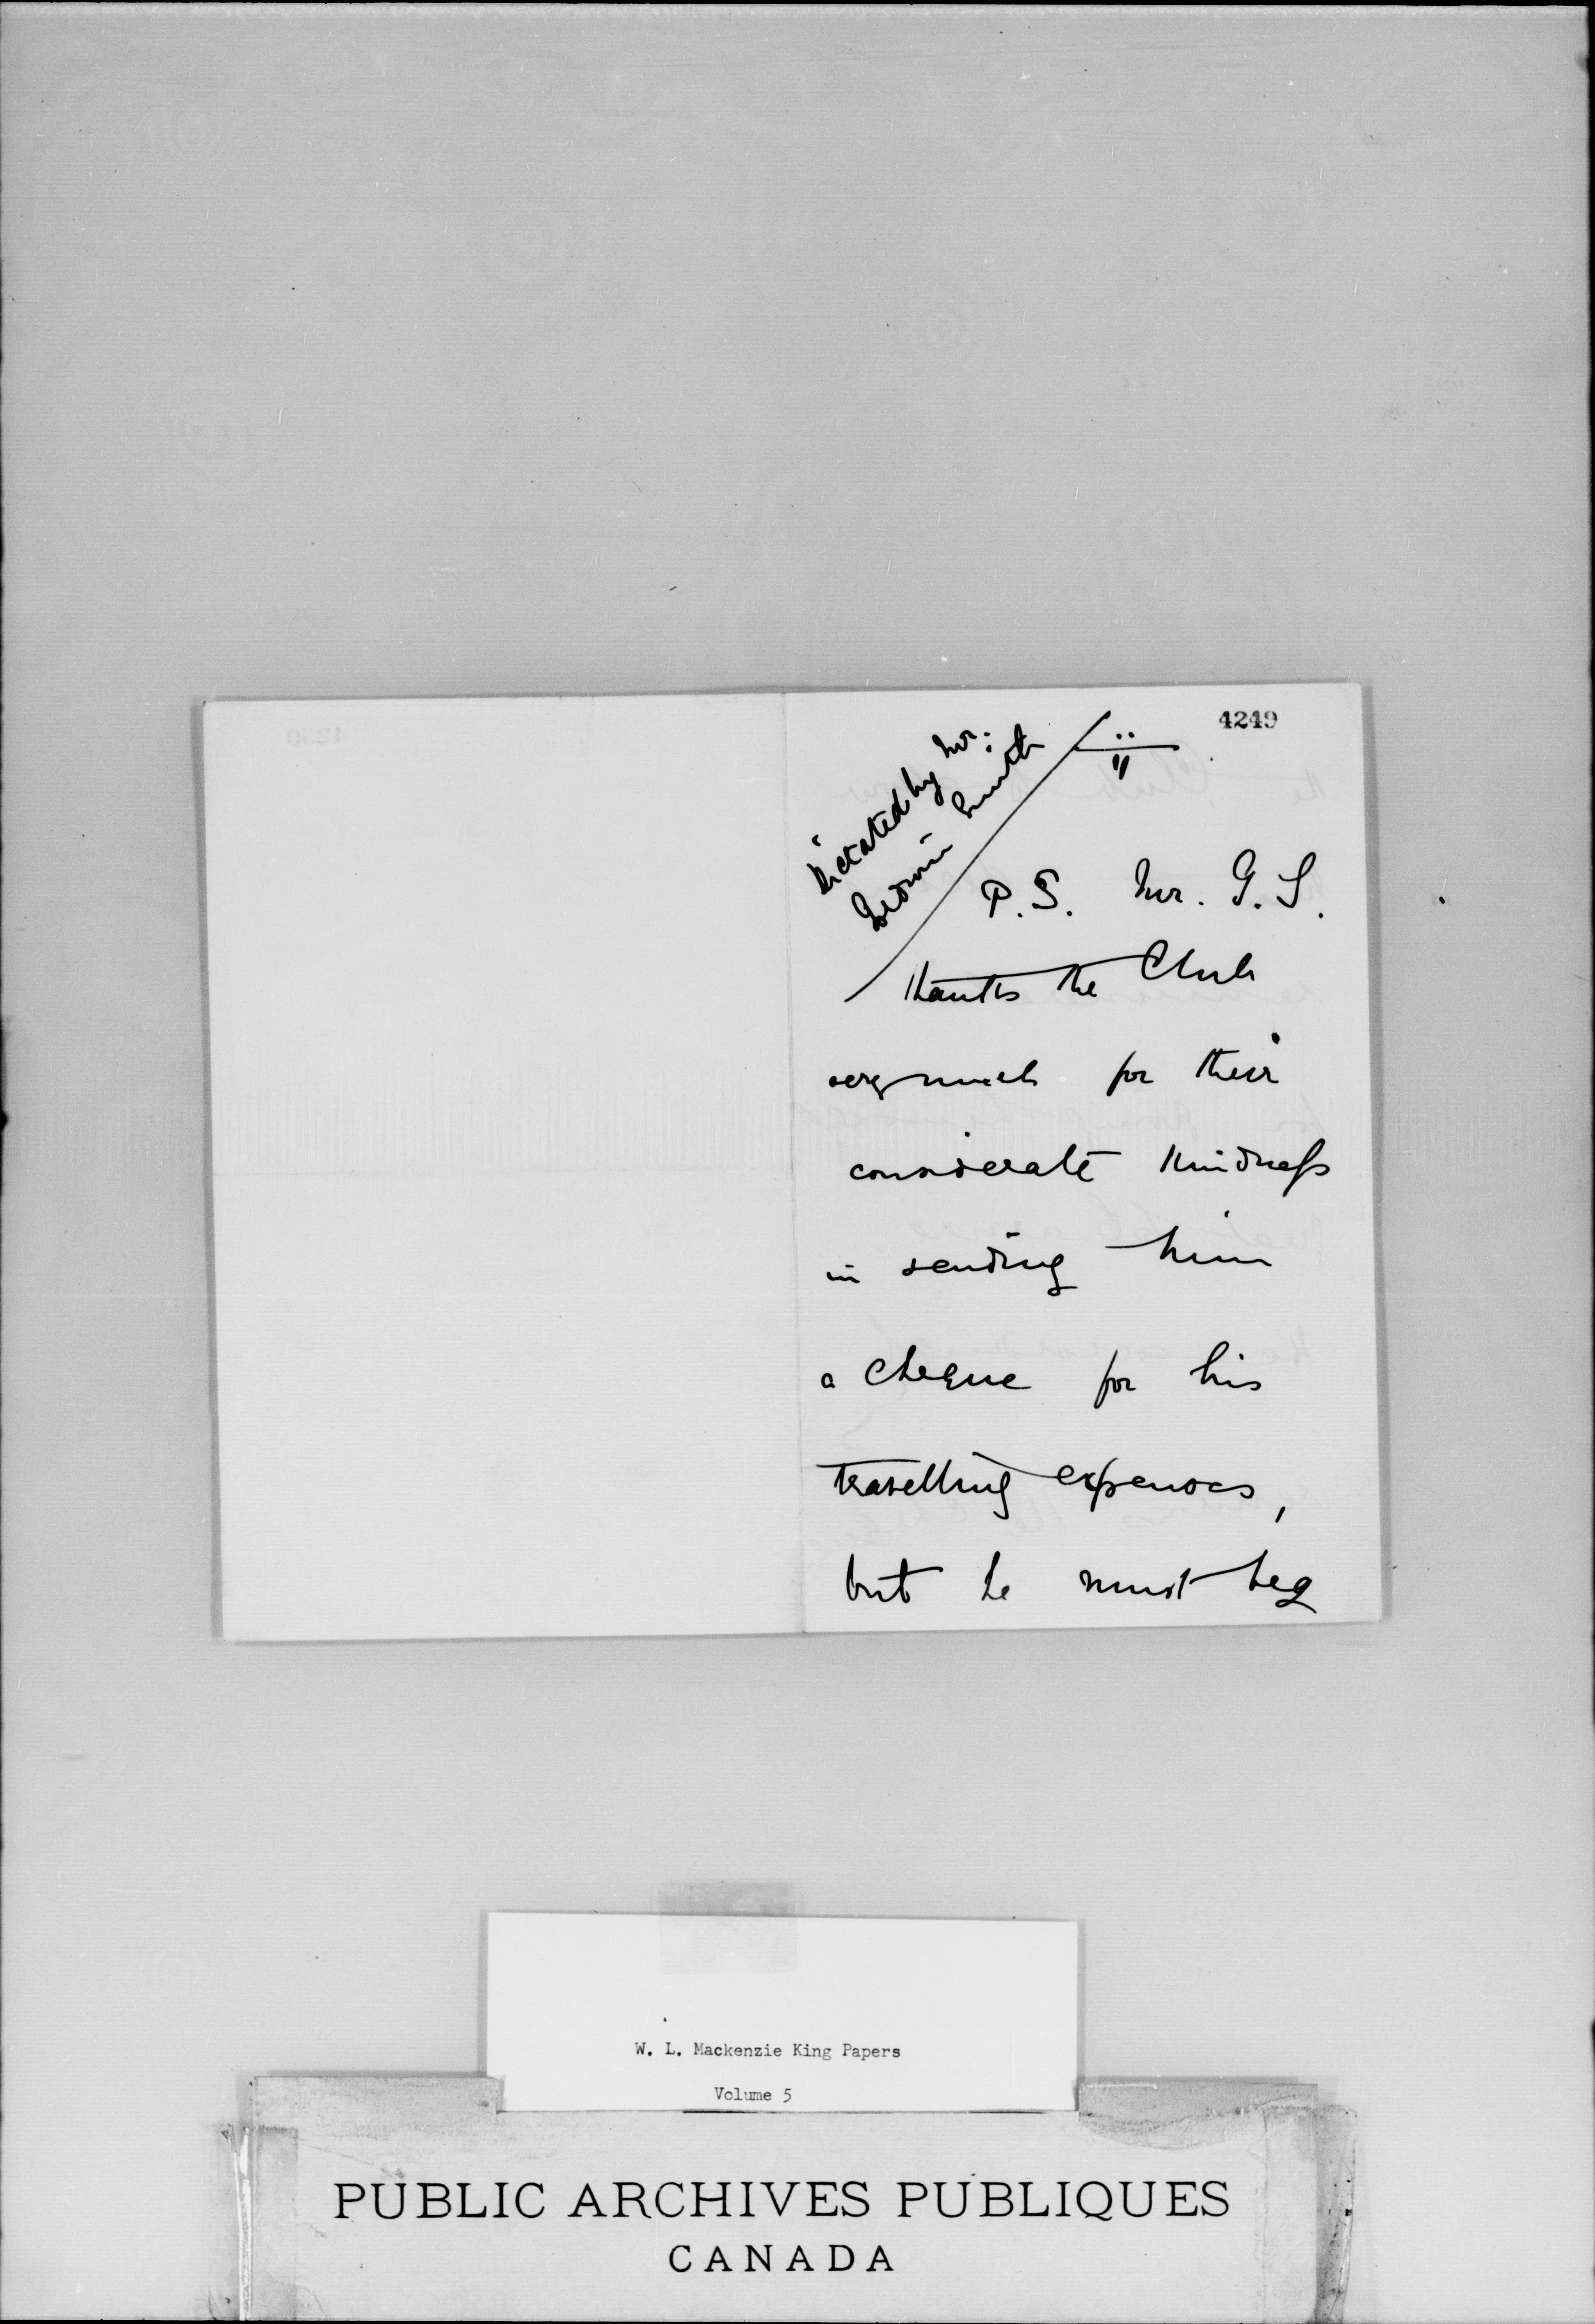 4249
Dictated by Mr.
Goldwin Smith
P.S. Mr. G. S.
thanks the Club
very much for their
considerate kindness
in sending him
a cheque for his
travelling expenses,
but he must beg
W. L. Mackenzie King Papers
Volume 5
PUBLIC ARCHIVES PUBLIQUES
CANADA